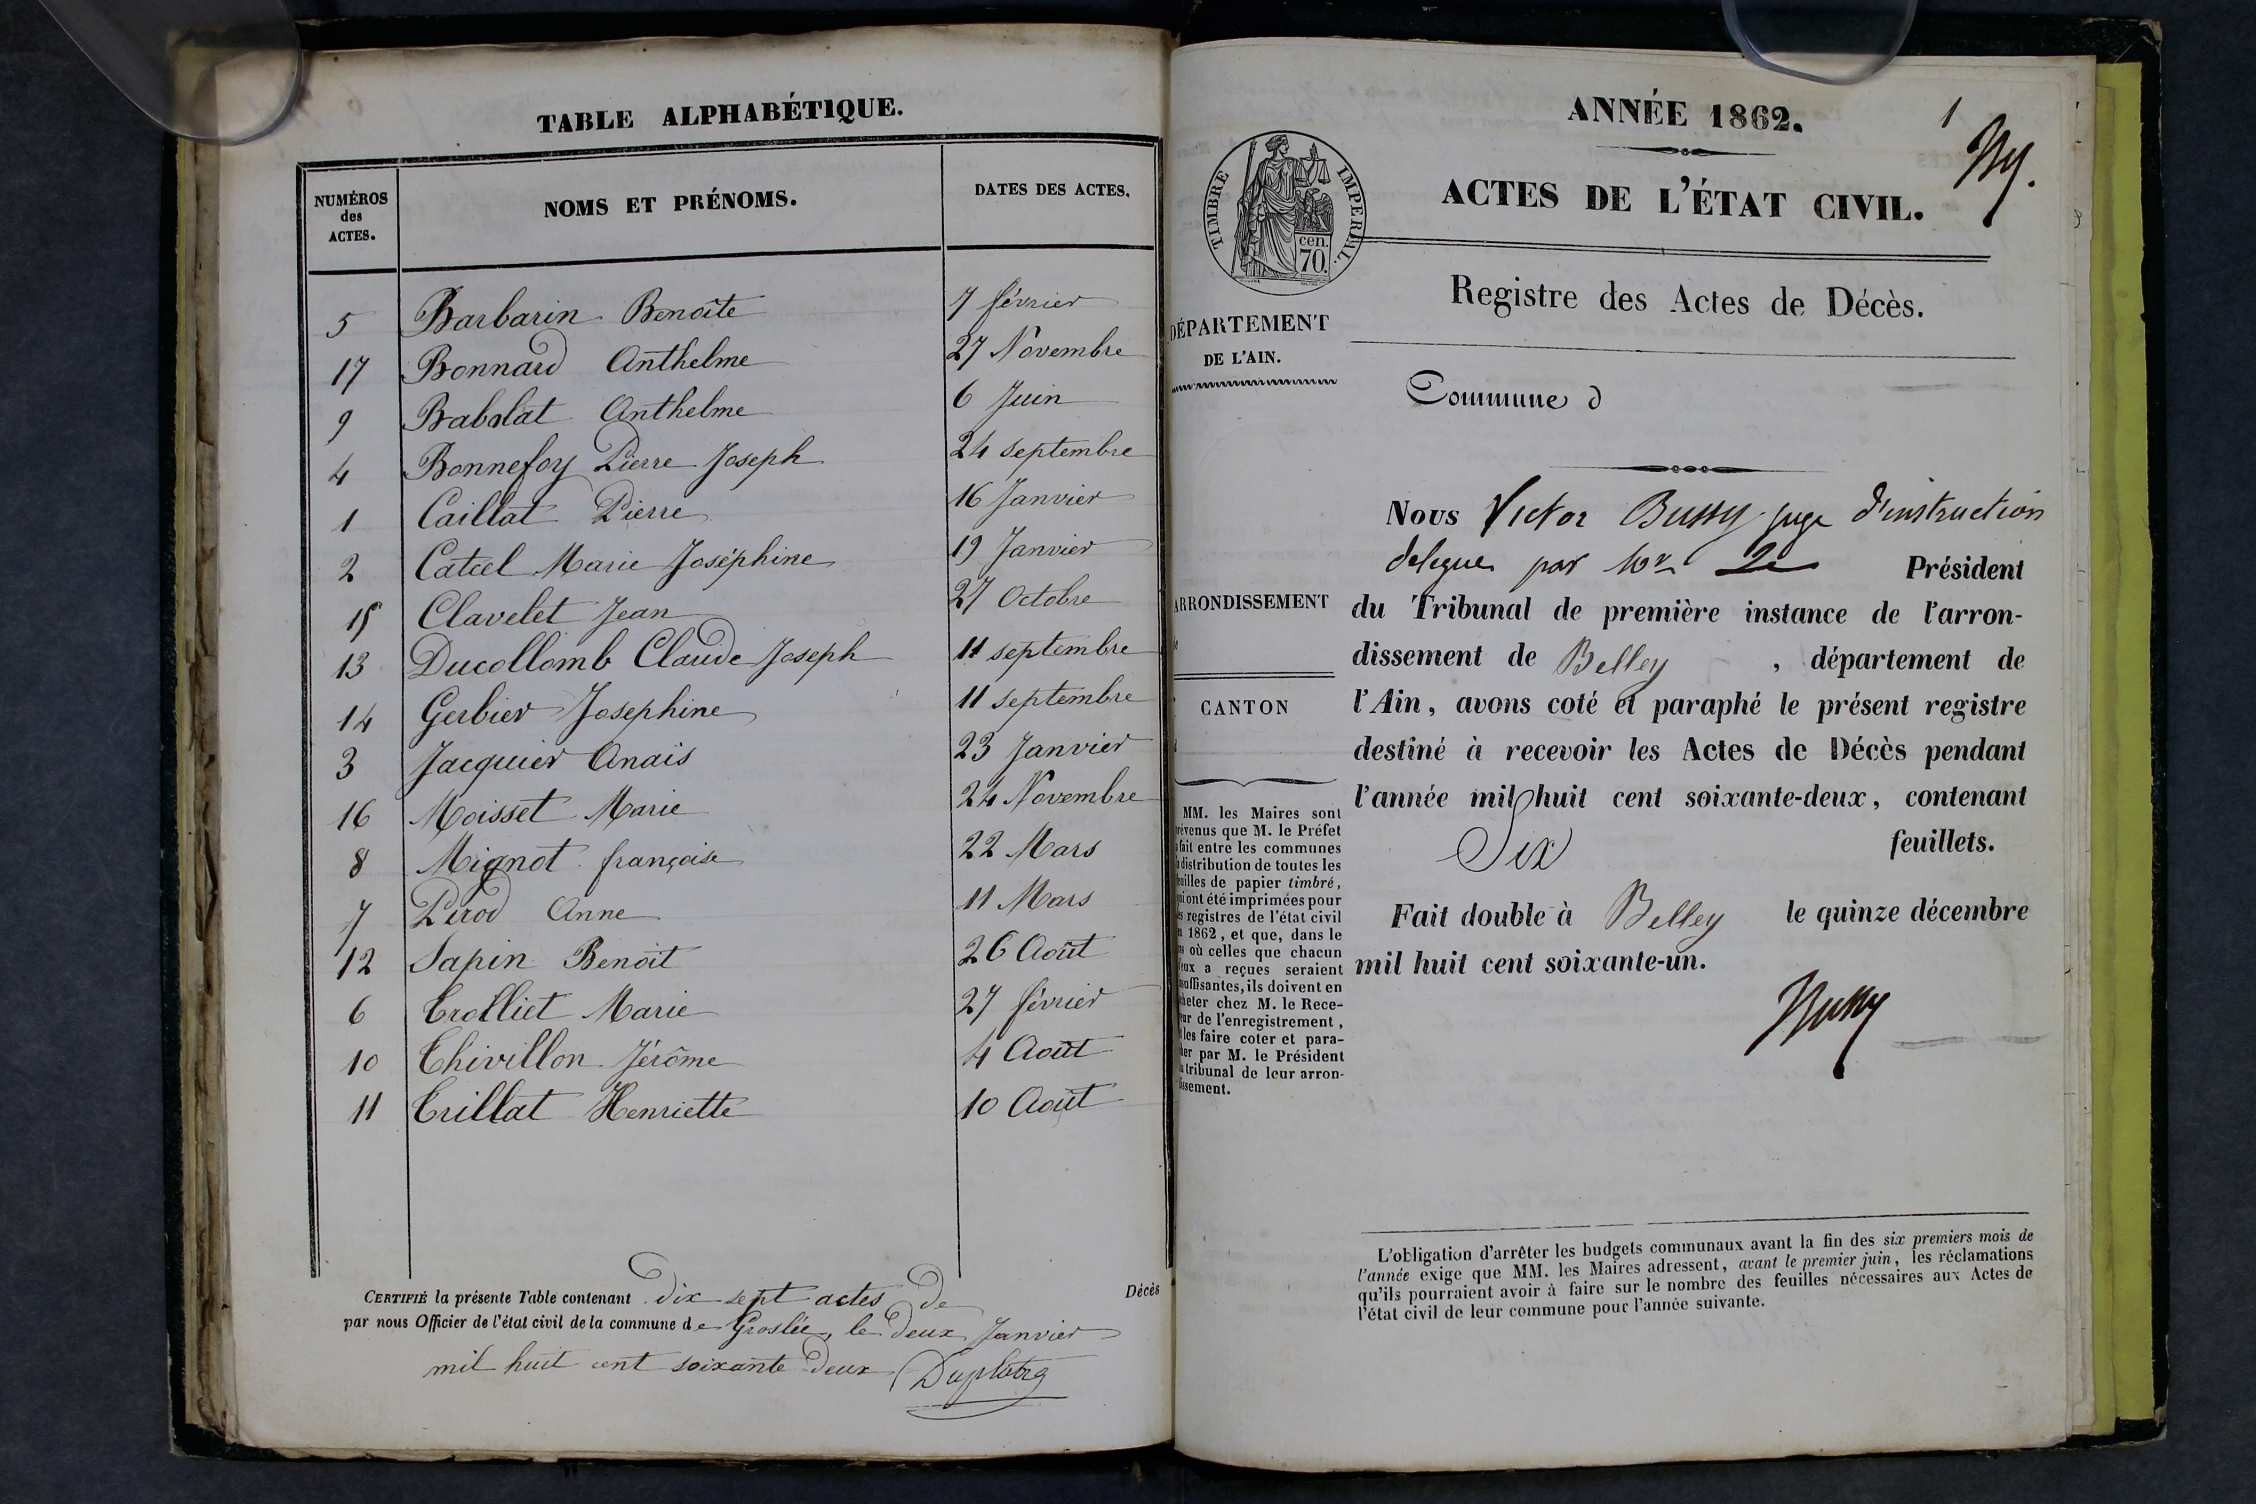 TABLE ALPHABÉTIQUE.
NUMÉROS des ACTES. NOMS ET PRÉNOMS. DATES DES ACTES.
5 Barbarin Benoîte 7 février
17 Bonnard Anthelme 27 Novembre
9 Babolat Anthelme 6 Juin
4 Bonnefoy Pierre Joseph 24 septembre
1 Caillat Pierre 16 Janvier
2 Catcel Marie Joséphine 19 Janvier
15 Clavelet Jean 27 Octobre
13 Ducollomb Claude Joseph 11 septembre
14 Gerbier Josephine 11 septembre
3 Jacquier Anaïs 23 Janvier
16 Moisset Marie 24 Novembre
8 Mignot françoise 22 Mars
7 Pérod Anne 11 Mars
12 Sapin Benoît 26 Août
6 Trolliet Marie 27 février
10 Thivillon Jérôme 4 Août
11 Trillat Henriette 10 Août
CERTIFIÉ la présente Table contenant dix sept actes de Décès
par nous Officier de l'état civil de la commune de Groslée, le deux Janvier
mil huit cent soixante deux
1
ANNÉE 1862.
TIMBRE IMPERIAL
cen.
70.
ACTES DE L'ÉTAT CIVIL.
Registre des Actes de Décès.
DÉPARTEMENT
DE L'AIN.
Commune d
ARRONDISSEMENT
CANTON
MM. les Maires sont
prévenus que M. le Préfet
fait entre les communes
distribution de toutes les
feuilles de papier timbré,
qui ont été imprimées pour
les registres de l'état civil
1862, et que, dans le
cas où celles que chacun
d'eux a reçues seraient
insuffisantes, ils doivent en
acheter chez M. le Rece-
veur de l'enregistrement,
les faire coter et para-
pher par M. le Président
du tribunal de leur arron-
dissement.
Nous Victor Bussy juge d'instruction
delegue par Mr Le Président
du Tribunal de première instance de l'arron-
dissement de Belley, département de
l'Ain, avons coté et paraphé le présent registre
destiné à recevoir les Actes de Décès pendant
l'année mil huit cent soixante-deux, contenant
Six feuillets.
Fait double à Belley le quinze décembre
mil huit cent soixante-un.
Bussy
L'obligation d'arrêter les budgets communaux avant la fin des six premiers mois de
l'année exige que MM. les Maires adressent, avant le premier juin, les réclamations
qu'ils pourraient avoir à faire sur le nombre des feuilles nécessaires aux Actes de
l'état civil de leur commune pour l'année suivante.